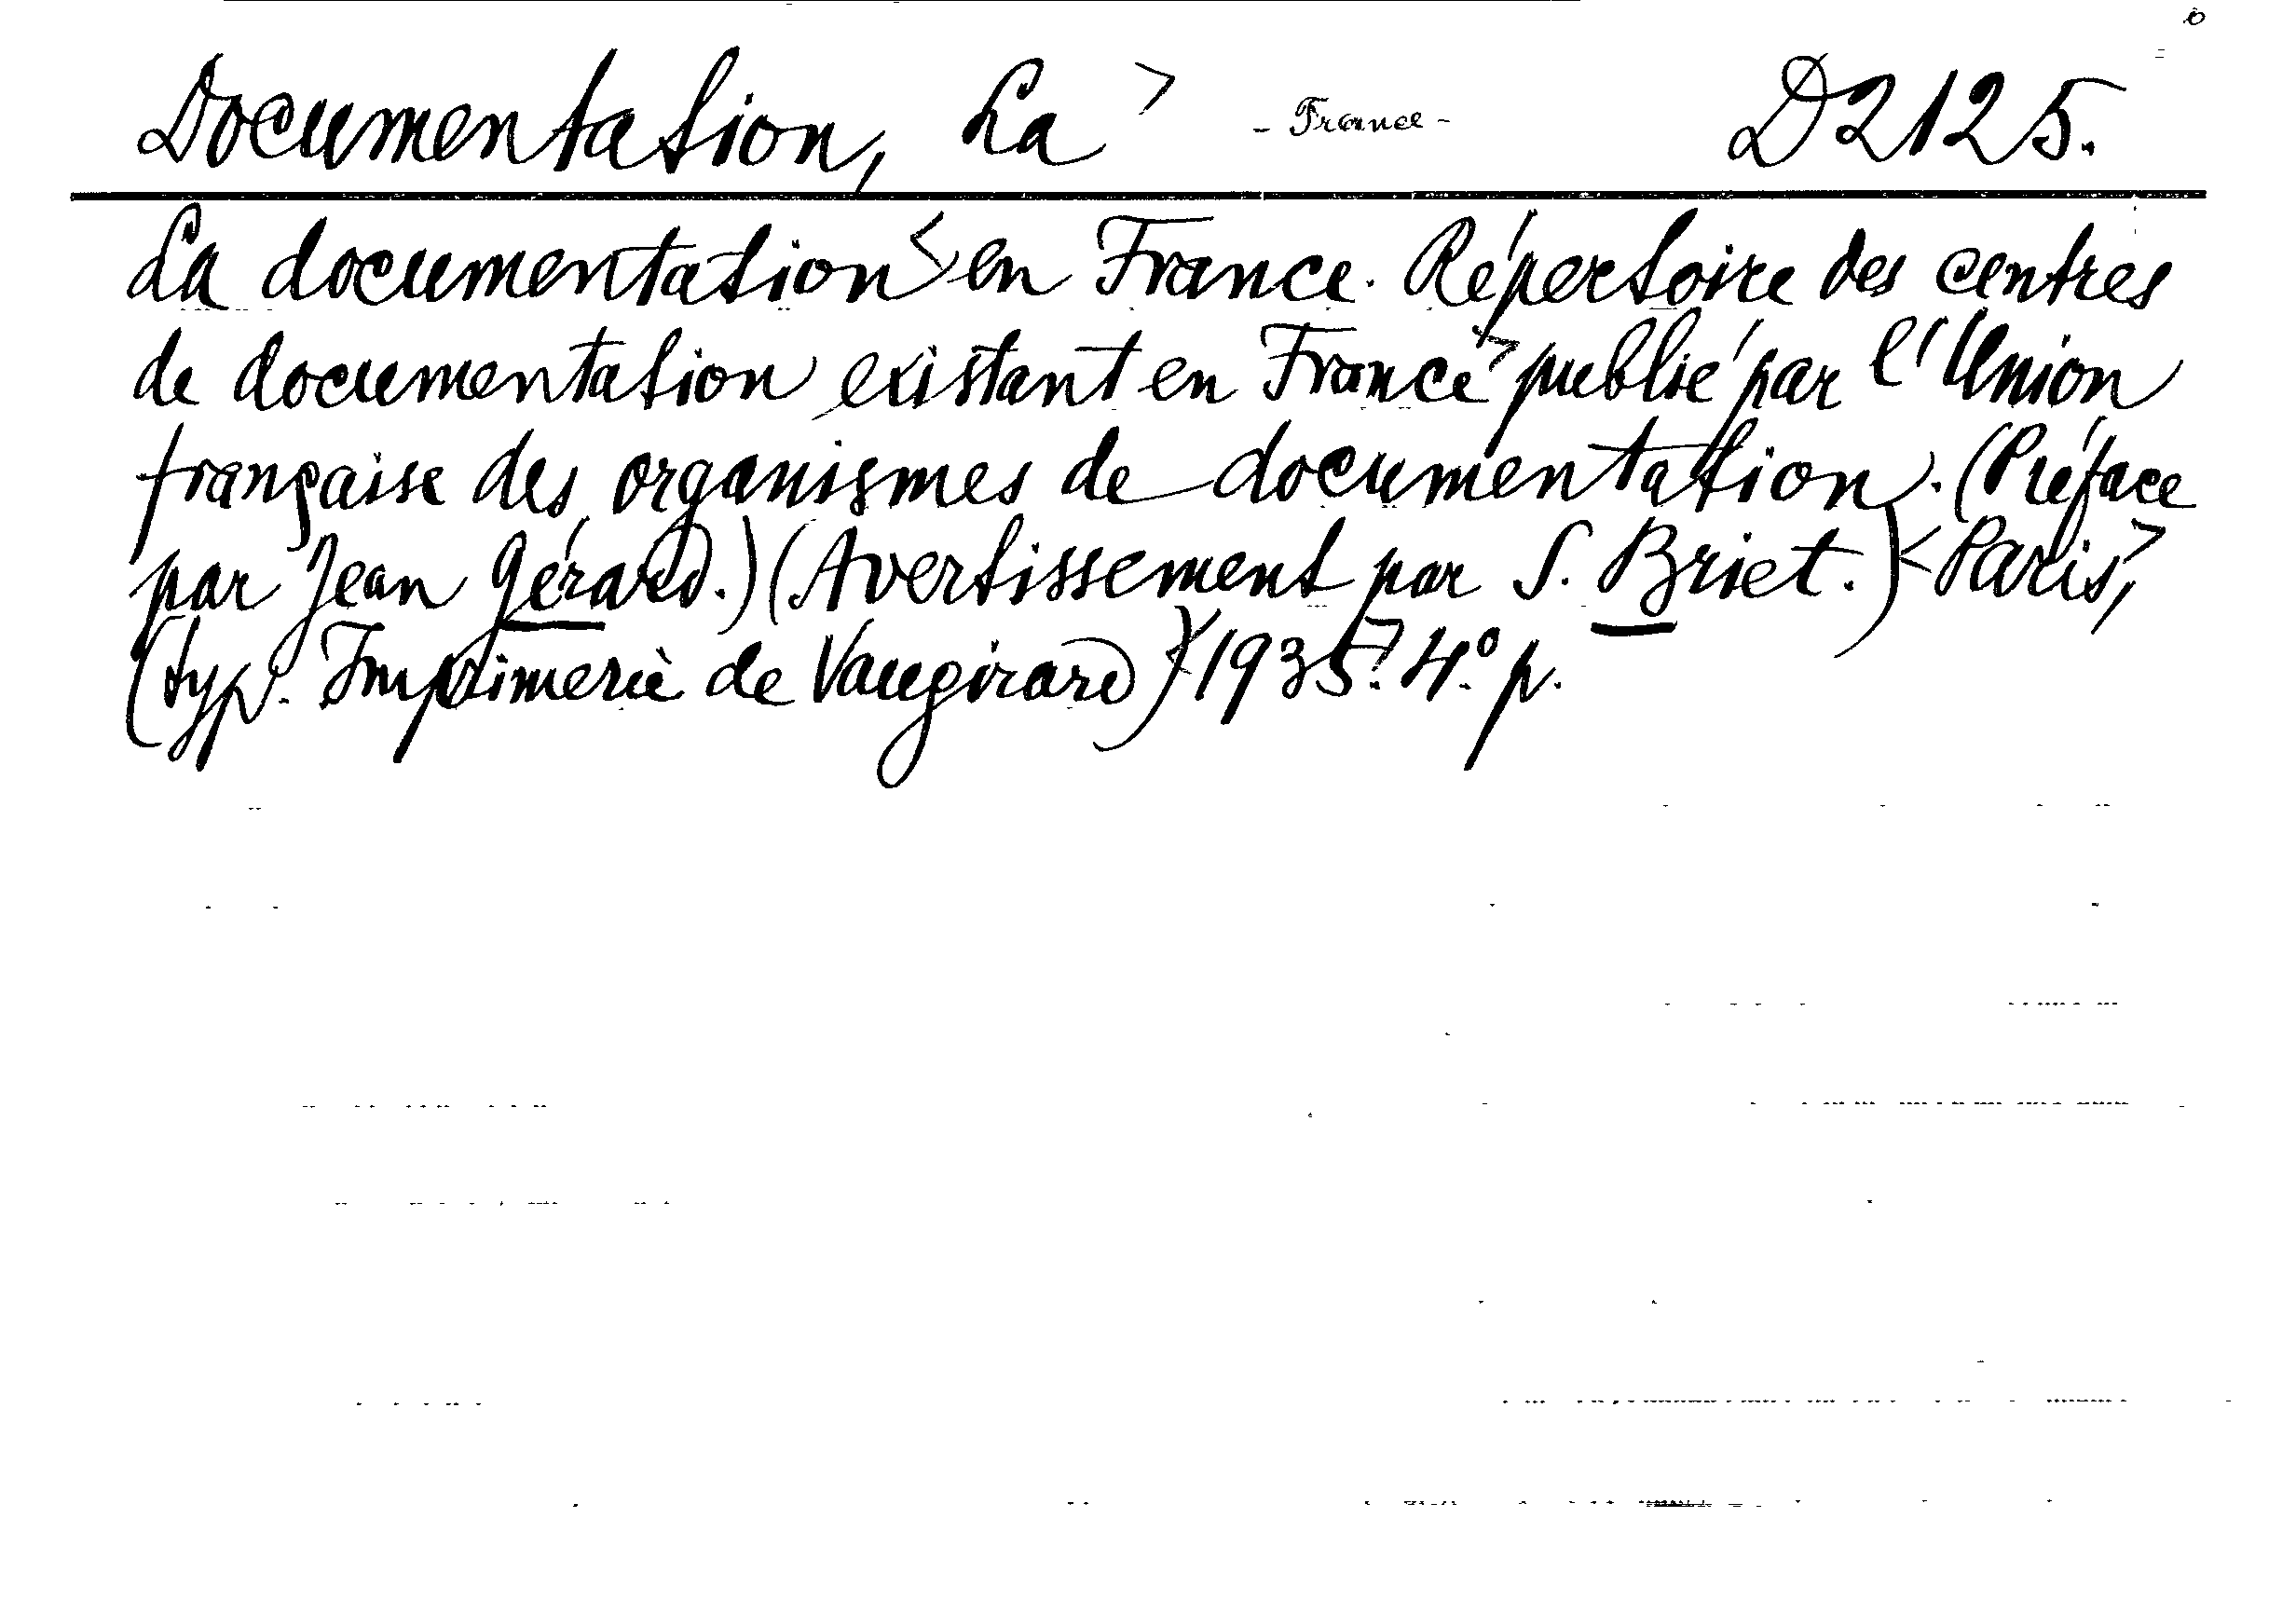 Documentation, La > - France - D2125.
La documentation < en France. Répertoire des centres
de documentation existant en France > publié par l'Union
française des organismes de documentation. (Préface
par Jean Gérard.) (Avertissement par S. Briet.) < Paris, >
(typ. Imprimerie de Vaugirard) < 1935 >. 4:o p.